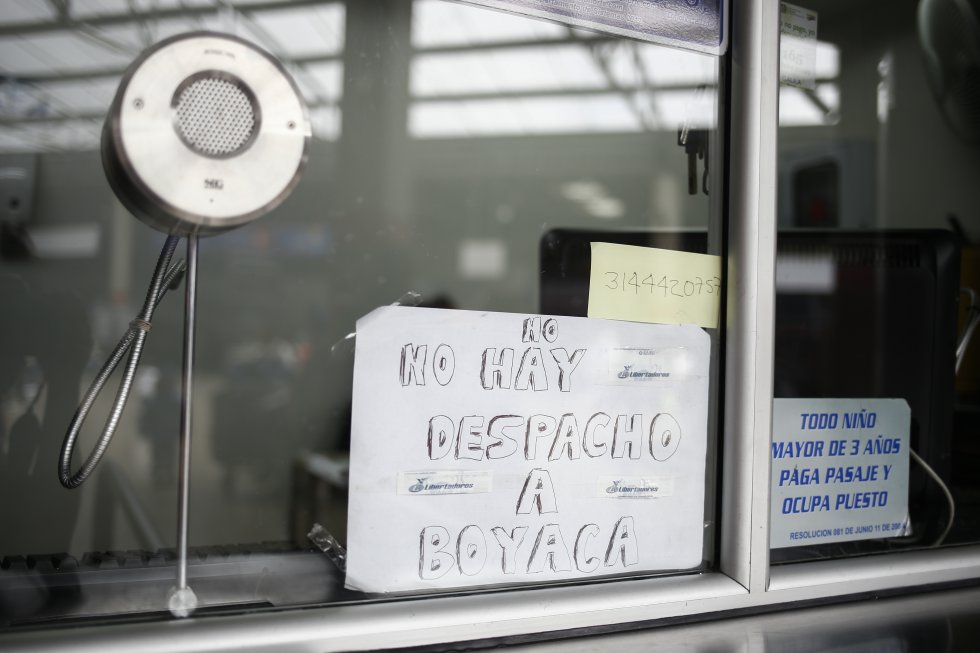 3144420757
HO
NO HAY
Libertadores
DESPACHO
Libertadores
Libertadores
A
BOYACA
TODO NIÑO
MAYOR DE 3 AÑOS
PÁGA PASAJE Y
OCUPA PUESTO
RESOLUCION 081 DE JUNIO 11 DE